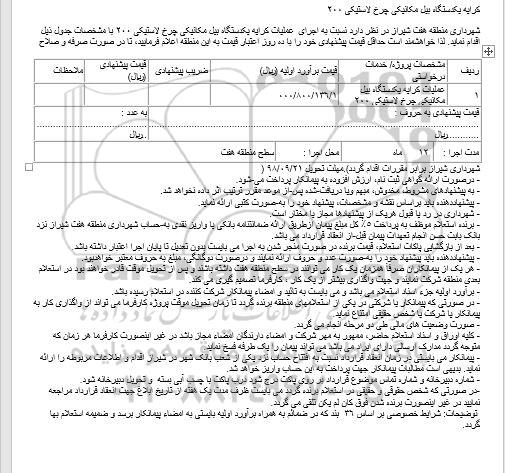 کرایه یکدستگاه بیل مکانیکی چرخ لاستیکی ۲۰۰
شهرداری منطقه هفت شیراز در نظر دارد نسبت به اجرای عملیات کرایه یکدستگاه بیل مکانیکی چرخ لاستیکی ۲۰۰ با مشخصات جدول ذیل
اقدام نماید. لذا خواهشمند است حداقل قیمت پیشنهادی خود را با ده روز اعتبار قیمت به این منطقه اعلام فرمایید، تا در صورت صرفه و صلاح
ردیف مشخصات پروژه/ خدمات درخواستی قیمت برآورد اولیه (ریال) ضریب پیشنهادی قیمت پیشنهادی (ریال) ملاحظات
۱ عملیات کرایه یکدستگاه بیل مکانیکی چرخ لاستیکی ۲۰۰ ۰۰۰/۸۰۰/۱۳۶/۱
قیمت پیشنهادی به حروف : به عدد :
............ریال ..ریال
مدت اجرا : ۱۲ ماه محل اجرا : سطح منطقه هفت
شهرداری شیراز برابر مقررات اقدام گردد).مهلت تحویل ۹۸/۰۹/۲۱
- درصورت ارائه گواهی ثبت نام، ارزش افزوده به پیمانکار پرداخت می‌شود.
- به پیشنهادهای مشروط، مخدوش، مبهم ویا دریافت‌شده پس‌از موعد مقرر ترتیب اثر داده نخواهد شد.
- پیشنهاددهنده باید براساس نقشه و مشخصات، پیشنهاد خود را به‌صورت کتبی ارائه نماید.
- شهرداری در رد یا قبول هریک از پیشنهادها مجاز یا مختار است.
- برنده استعلام موظف به پرداخت ۵٪ کل مبلغ پیمان ازطریق ارائه ضمانتنامه بانکی یا واریز نقدی به‌حساب شهرداری منطقه هفت شیراز نزد
بانک بابت حسن انجام تعهدات پیمان قبل‌از انعقاد قرارداد می باشد.
- بعد از بازگشایی پاکات استعلام، قیمت برنده در صورت منجر شدن به اجرا می بایست بدون تعدیل تا پایان اجرا اعتبار داشته باشد.
- پیشنهاددهنده باید پیشنهاد خود را به‌صورت عدد و حروف ارائه نمایند و درصورت دوگانگی، مبلغ به حروف معتبر خواهدبود.
- هر یک از پیمانکاران صرفا همزمان یک کار می توانند در سطح منطقه هفت داشته باشند و پس از تحویل موقت قادر خواهند بود در استعلام
بعدی منطقه شرکت نمایند و جهت واگذاری بیشتر از یک کار ، کارفرما تصمیم گیری می کند.
- برآورد اولیه جزء اسناد استعلام می باشد و می بایست به تائید و امضاء پیمانکار شرکت کننده در استعلام رسیده باشد.
- در صورتی که پیمانکار یا شرکتی در یکی از استعلامهای منطقه برنده گردد تا زمان تحویل موقت پروژه کارفرما می تواند از واگذاری کار به
پیمانکار یا شرکت یا شخص حقیقی امتناع نماید.
- صورت وضعیت های مالی طی دو مرحله انجام می گردد.
- کلیه اوراق و اسناد استعلام حاضر، ممهور به مهر شرکت و امضاء دارندگان امضاء مجاز باشد در غیر اینصورت کارفرما هر زمان که
متوجه گردد مدارک ارسالی دارای ایراد می باشد می تواند پیمان را یک طرفه فسخ نماید.
- پیمانکار می بایستی در زمان انعقاد قرارداد نسبت به افتتاح حساب نزد یکی از شعب بانک شهر در شیراز اقدام و اطلاعات مربوطه را ارائه
نماید. بدیهی است مطالبات پیمانکار جهت پرداخت به این حساب واریز خواهد شد.
- شماره دبیرخانه و شماره تماس موضوع قرارداد بر روی پاکت درج شود. درب پاکت با چسب آبی بسته و تحویل دبیرخانه شود.
-در صورتی که شخص حقوقی و حقیقی در استعلام برنده گردد می بایست ظرف مدت یک هفته از تاریخ ابلاغ جهت انعقاد قرارداد مراجعه
نمایید در غیر اینصورت برنده شدن فوق کان لم یکن تلقی می گردد.
توضیحات: شرایط خصوصی بر اساس ۳۶ بند که در ضمائم به همراه برآورد اولیه بایستی به امضاء پیمانکار برسد و ضمیمه استعلام بها
گردد.